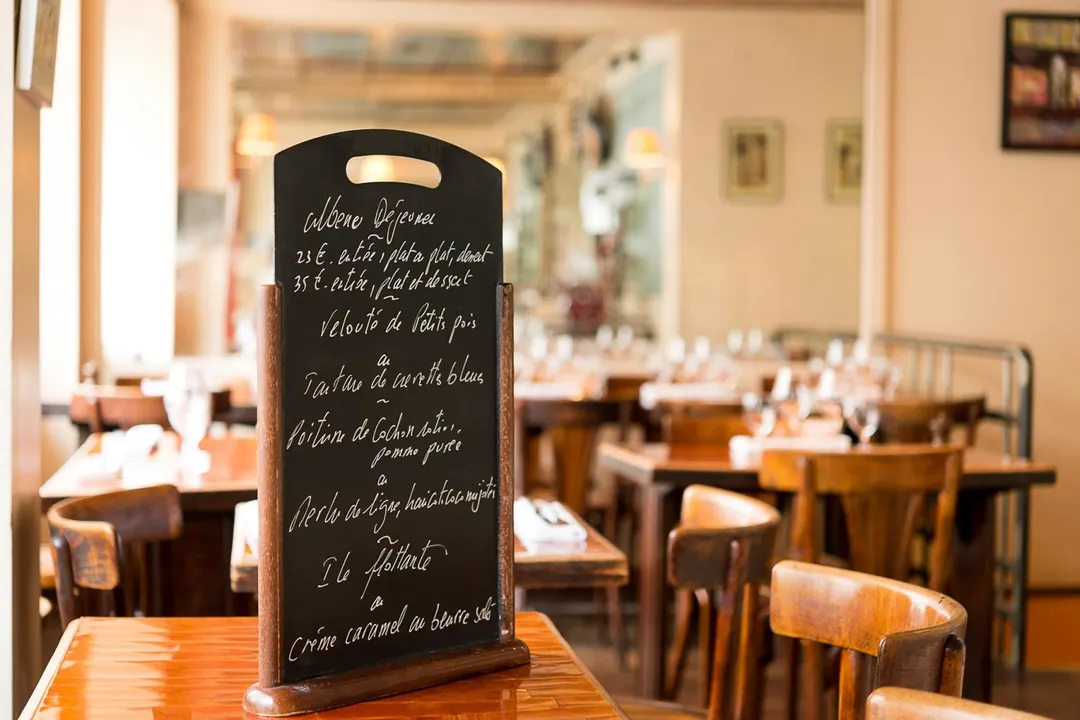 Menu Déjeuner
23 €. entrée, plat ou plat, dessert
35 €. entrée, plat et dessert
Velouté de Petits pois
ou
Tartare de crevettes bleues
Poitrine de Cochon
pomme purée
ou
Merlu de ligne, haricot coco
Ile flottante
ou
Crème caramel au beurre salé